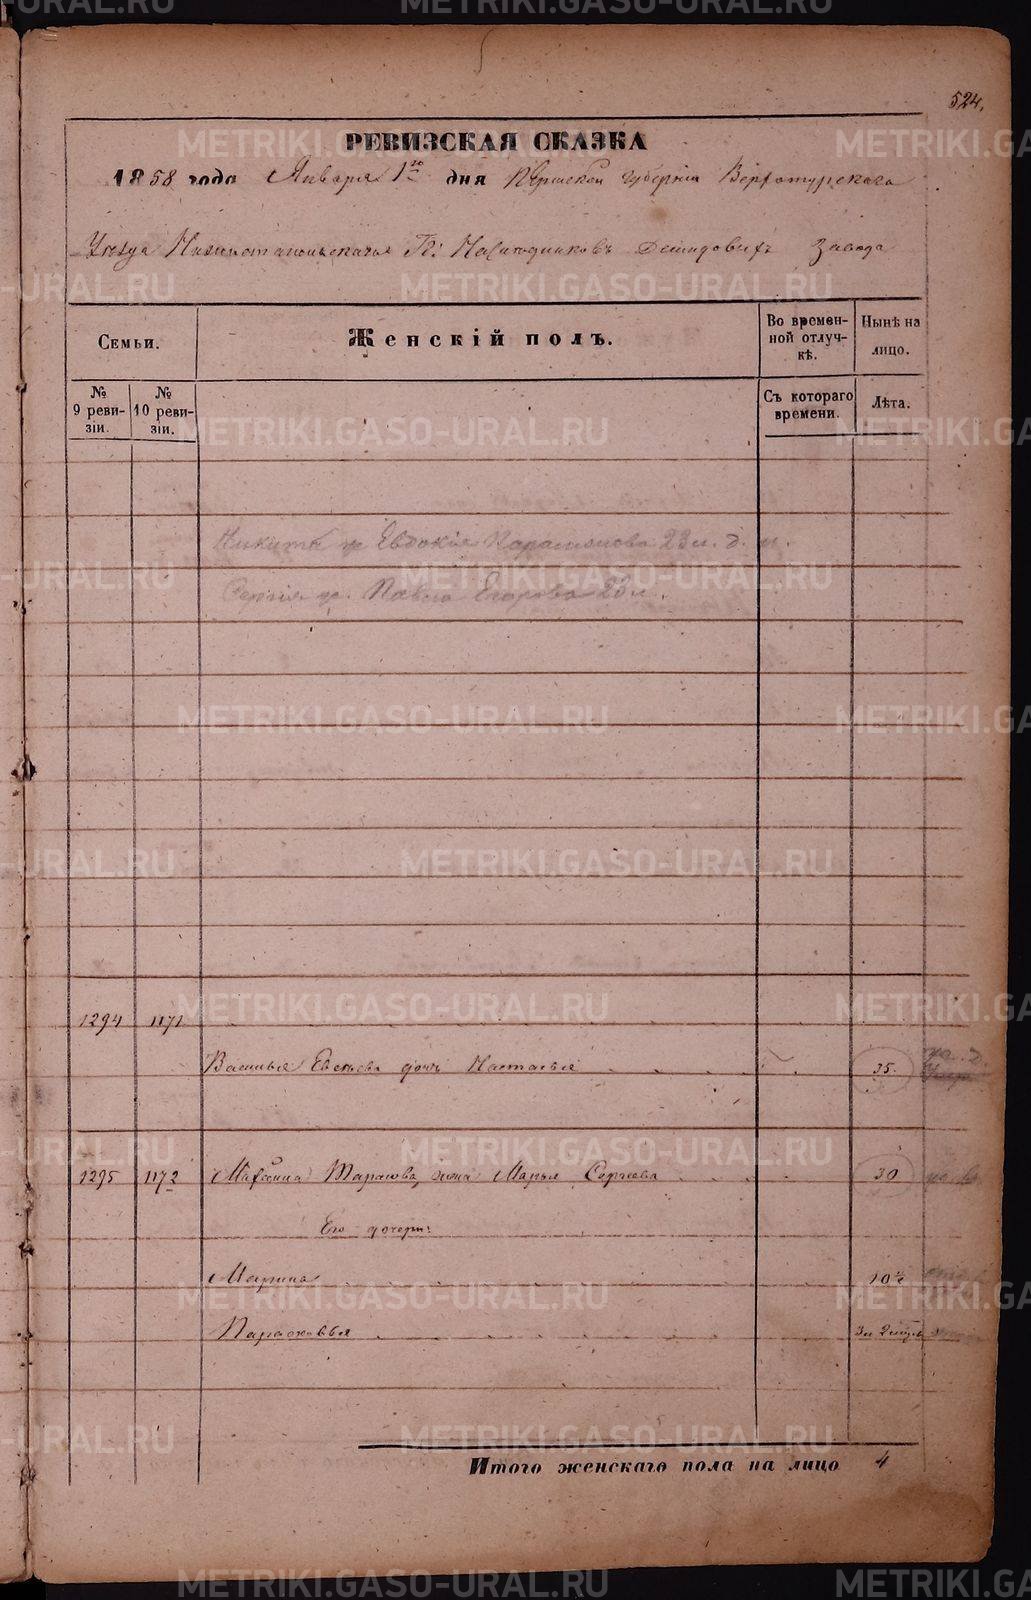 524.
РЕВИЗСКАЯ СКАЗКА
1858 года Января 1го дня Пермской губерніи Верхотурскаго
Уѣзда Нижнетагильскаго Гг: Наслѣдниковъ Демидовыхъ Завода
Семьи.
Женскій полъ.
Во временной отлучкѣ.
Нынѣ на лицо.
№ 9 ревизіи.
№ 10 ревизіи.
Съ котораго времени.
Лѣта.
Никиты Евдокія Парамонова 23 л.
Сергія Павла Егорова 23 л.
1294 1171
Василья дочь Настасья 35.
1295 1172 Тарасова, жена Марья Сергѣева 30
Его дочери:
Марина 10
Парасковья 3
Итого женскаго пола на лицо 4
METRIKI.GASO-URAL.RU